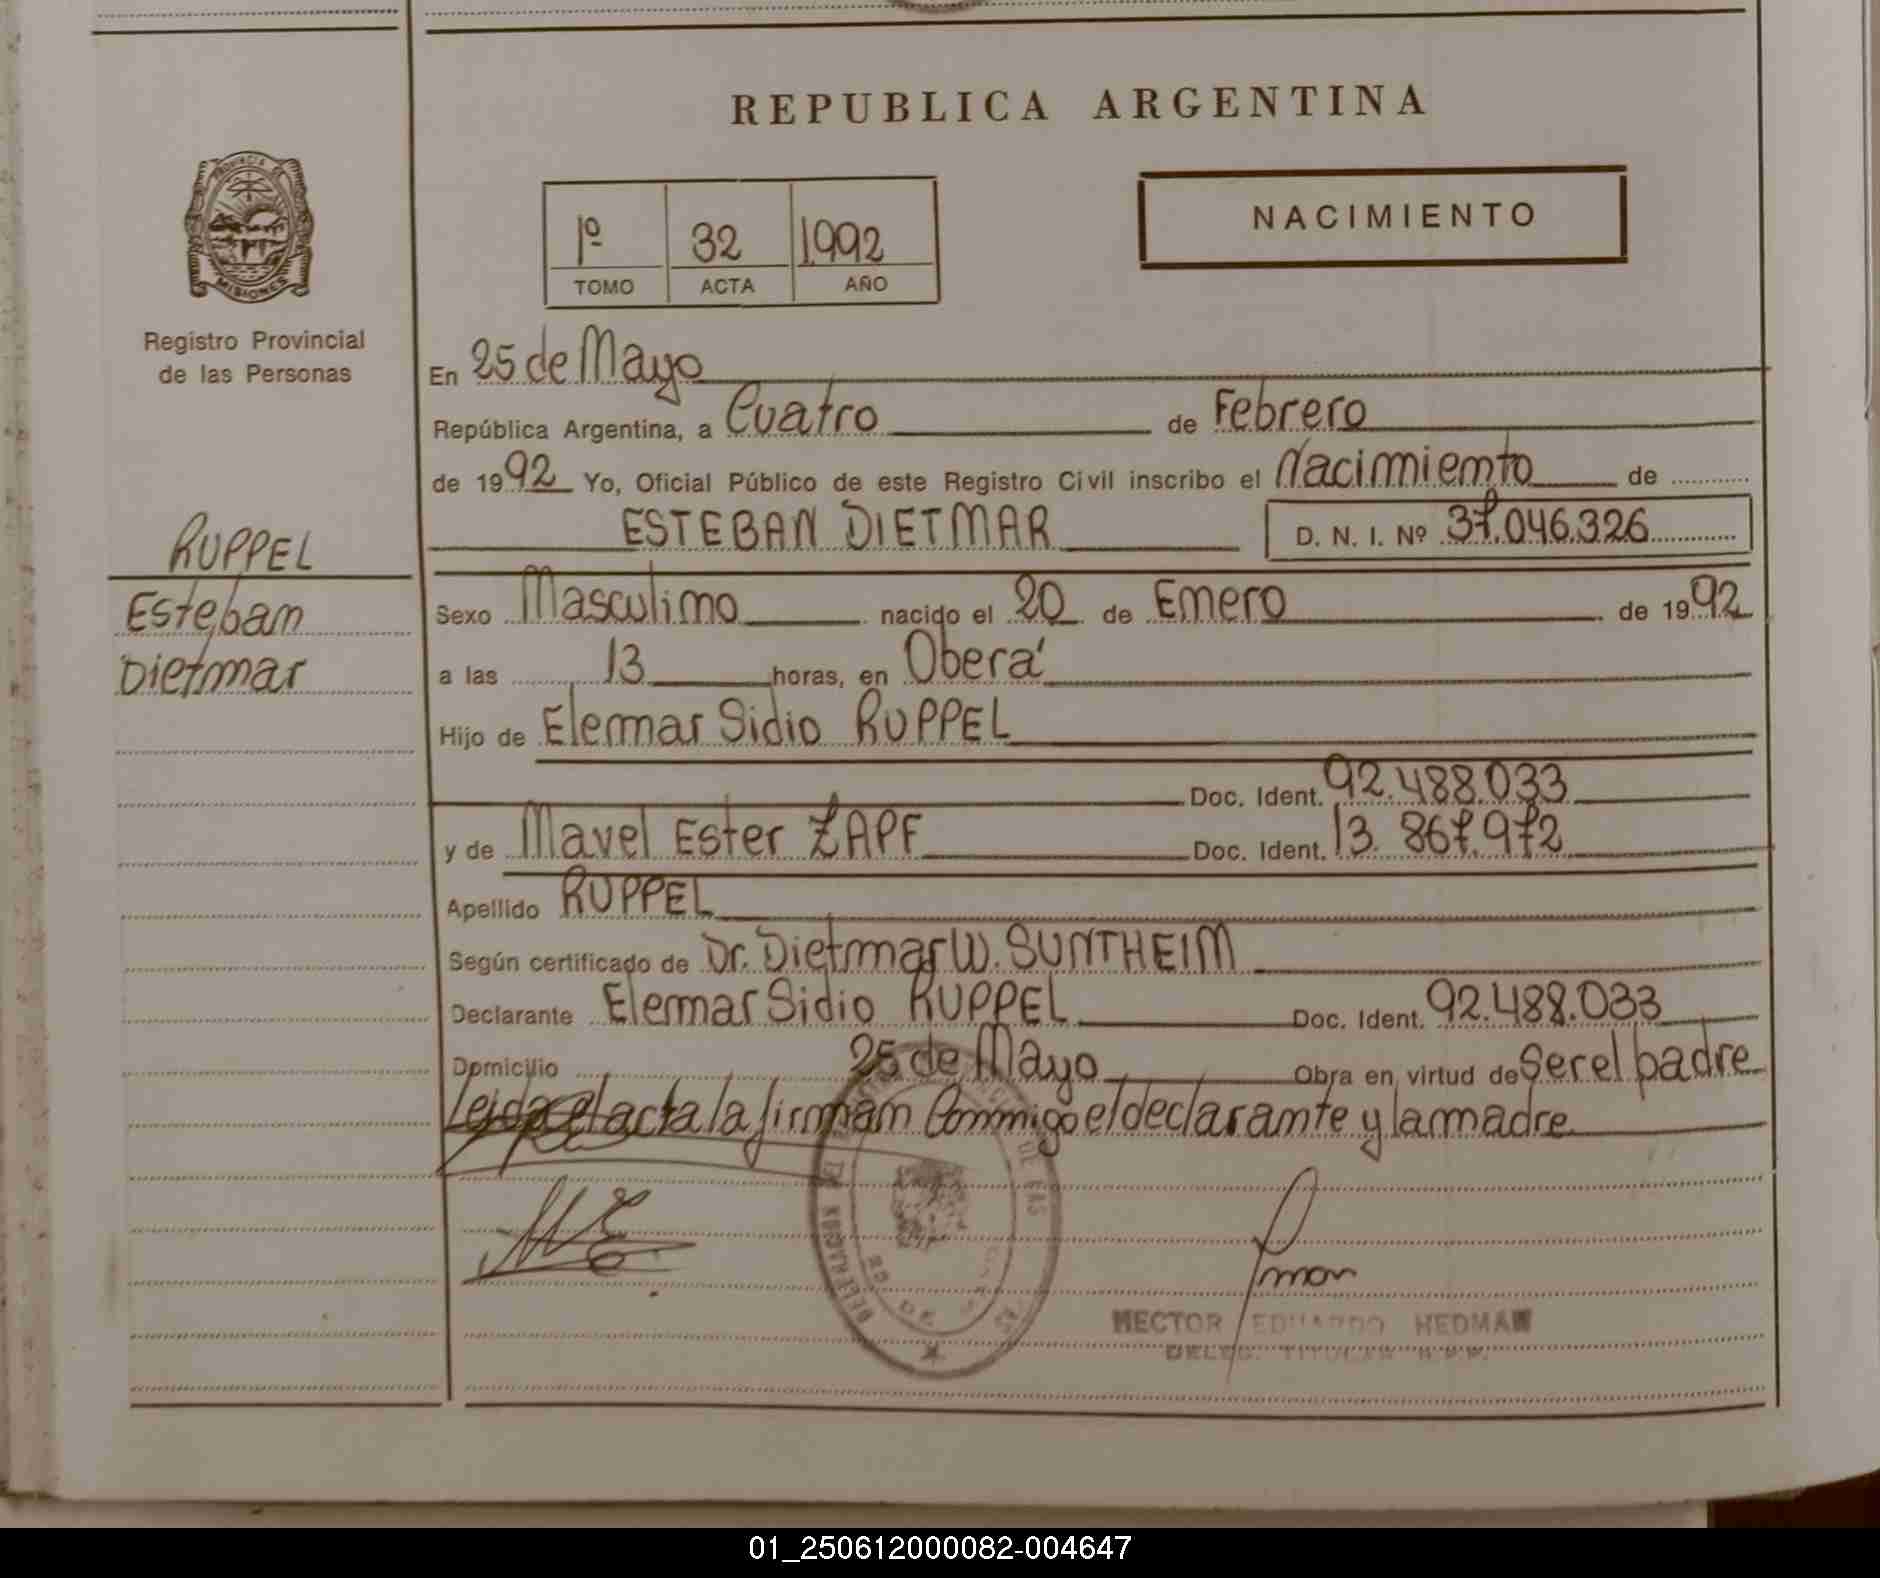 REPUBLICA ARGENTINA
PROVINCIA DE
MISIONES
Registro Provincial
de las Personas
1º 32 1992
TOMO ACTA AÑO
NACIMIENTO
En 25 de Mayo
República Argentina, a Cuatro de Febrero
de 1992 Yo, Oficial Público de este Registro Civil inscribo el Nacimiento de
ESTEBAN DIETMAR D. N. I. Nº 37.046.326
RUPPEL
Esteban
Dietmar
Sexo Masculino nacido el 20 de Enero de 1992
a las 13 horas, en Oberá
Hijo de Elemar Sidio RUPPEL
Doc. Ident. 92.488.033
y de Mavel Ester ZAPF Doc. Ident. 13.867.972
Apellido RUPPEL
Según certificado de Dr. Dietmar W. SUNTHEIM
Declarante Elemar Sidio RUPPEL Doc. Ident. 92.488.033
Domicilio 25 de Mayo Obra en virtud de Ser el padre
Leida el acta la firman Conmigo el declarante y la madre
HECTOR EDUARDO HEDMAN
DELEG. TITULAR R.P.P.
01_250612000082-004647